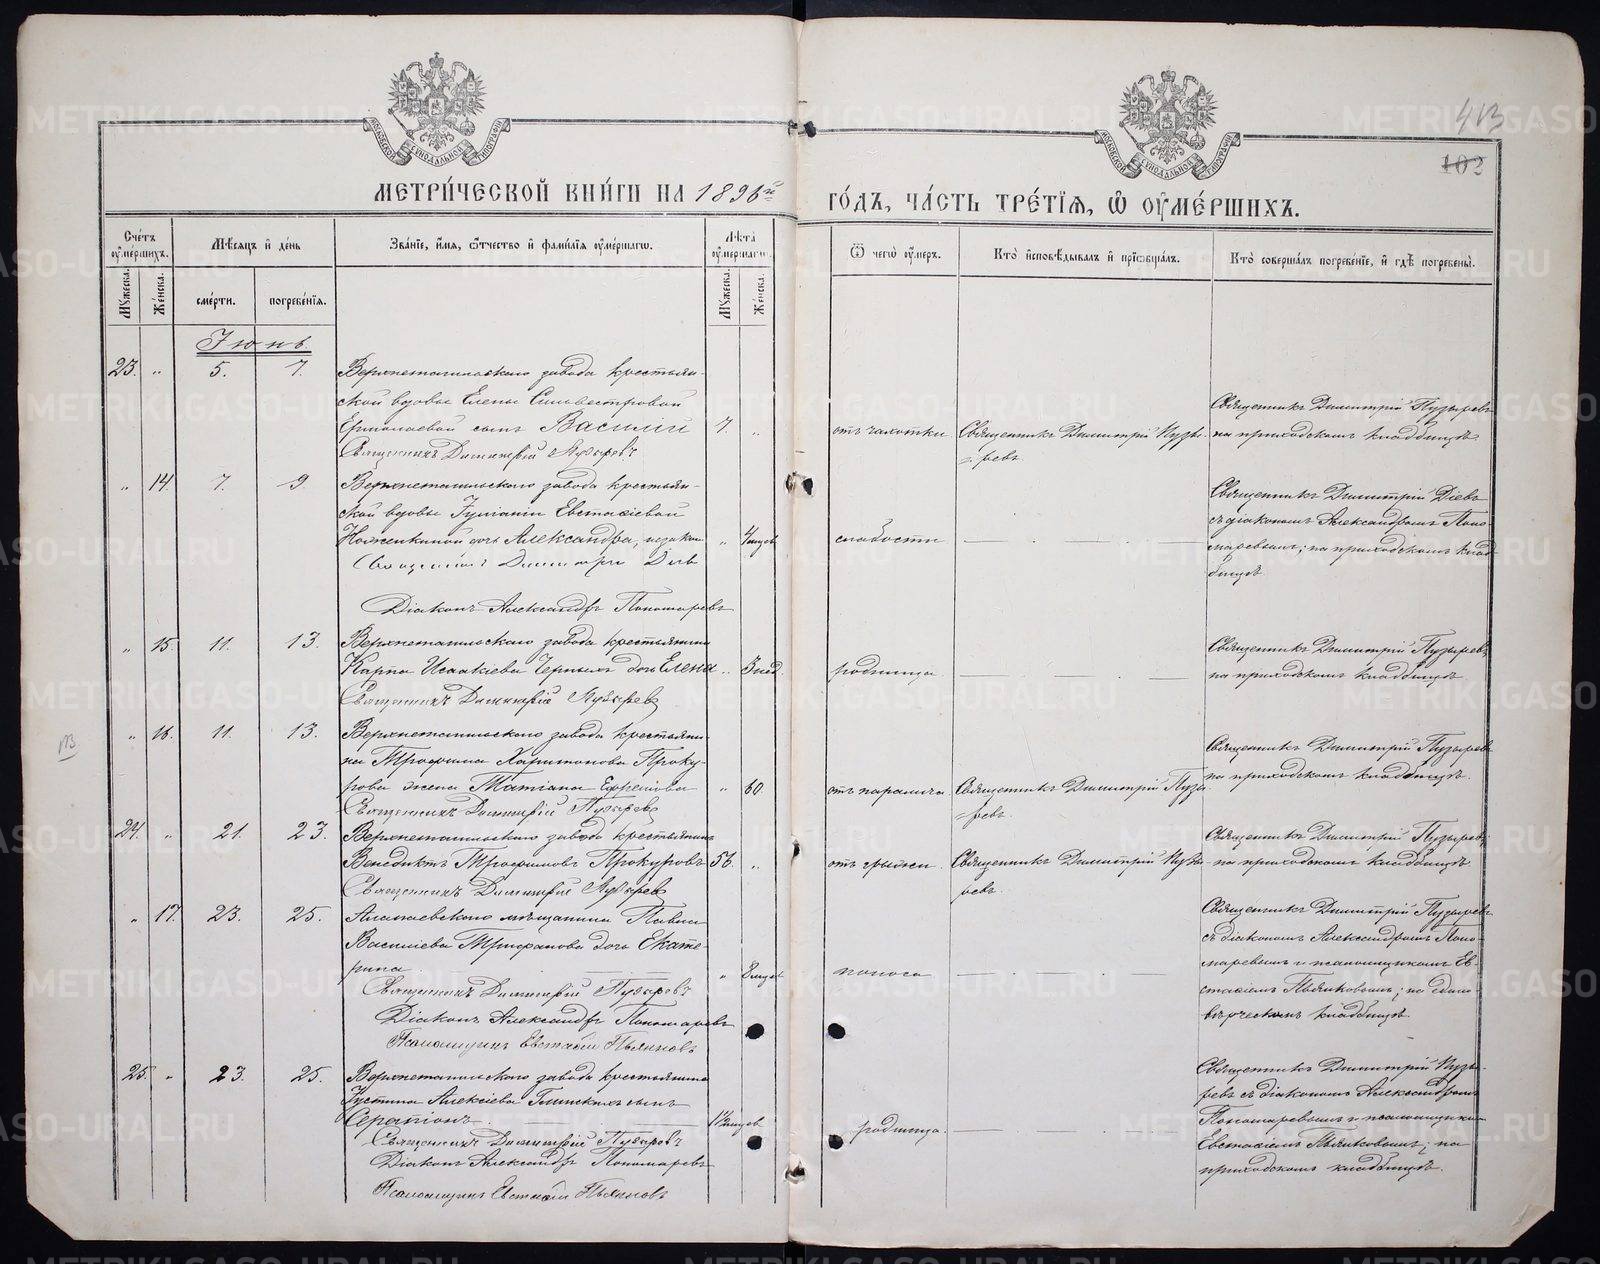 МОСКОВСКОЙ СѴНОДАЛЬНОЙ ТИПОГРАФІИ
МОСКОВСКОЙ СѴНОДАЛЬНОЙ ТИПОГРАФІИ
413
102
МЕТРИ́ЧЕСКОЙ КНИ́ГИ НА 1896й
ГО́ДЪ, ЧА́СТЬ ТРЕ́ТІѦ, Ѡ ОУМЕ́РШИХЪ.
Сче́тъ оумершихъ.
Мѣсяцъ и день
Званіе, имя, отчество и фамилія оумершагѡ.
Лѣта оумершагѡ
Ѿ чегѡ оумеръ.
Кто исповѣдывалъ и пріобщалъ.
Кто совершалъ погребеніе, и гдѣ погребены.
Мужеска.
Женска.
смерти.
погребенія.
Мужеска.
Женска.
Іюнь.
23. " 5. 7.
Верхнетагильскаго завода крестьян-
ской вдовы Елены Сильвестровой
Ермолаевой сынъ Василій 7 "
Священникъ Димитрій Пузыревъ
отъ чахотки
Священникъ Димитрій Пузы-
ревъ
Священникъ Димитрій Пузыревъ
на приходскомъ кладбищѣ.
" 14. 7. 9.
Верхнетагильскаго завода крестьян-
ской вдовы Іуліаніи Евстафіевой
дочь Александра, незакон. " 4 мцев
Священникъ Димитрій Діевъ
Діаконъ Александръ Пономаревъ
слабости
Священникъ Димитрій Діевъ
съ діакономъ Александромъ Поно-
маревымъ; на приходскомъ клад-
бищѣ.
" 15. 11. 13.
Верхнетагильскаго завода крестьянина
Карпа Исаакіева Черныхъ дочь Елена " 3 нед.
Священникъ Димитрій Пузыревъ
родимца
Священникъ Димитрій Пузыревъ
на приходскомъ кладбищѣ
" 16. 11. 13.
Верхнетагильскаго завода крестьяни-
на Трофима Харитонова Проку-
рова жена Татіана Ефремова " 60
Священникъ Димитрій Пузыревъ
отъ паралича
Священникъ Димитрій Пузы-
ревъ.
Священникъ Димитрій Пузыревъ
на приходскомъ кладбищѣ.
24. " 21. 23.
Верхнетагильскаго завода крестьянинъ
Венедиктъ Трофимовъ Прокуровъ 56. "
Священникъ Димитрій Пузыревъ
отъ грыжи
Священникъ Димитрій Пузы-
ревъ.
Священникъ Димитрій Пузыревъ;
на приходскомъ кладбищѣ
" 17. 23. 25.
Алапаевскаго мѣщанина Павла
Василіева Трифанова дочь Екате-
рина " 8 мцев
Священникъ Димитрій Пузыревъ
Діаконъ Александръ Пономаревъ
Псаломщикъ Евстафій Пьянковъ
поноса
Священникъ Димитрій Пузыревъ
съ діакономъ Александромъ Поно-
маревымъ и псаломщикомъ Ев-
стафіемъ Пьянковымъ; на едино-
вѣрческомъ кладбищѣ
25. " 23. 25.
Верхнетагильскаго завода крестьянина
Іустина Алексіева Глинскихъ сынъ
Серапіонъ.
Священникъ Димитрій Пузыревъ
Діаконъ Александръ Пономаревъ
Псаломщикъ Евстафій Пьянковъ
родимца.
Священникъ Димитрій Пузы-
ревъ съ діакономъ Александромъ
Пономаревымъ и псаломщикомъ
Евстафіемъ Пьянковымъ; на
приходскомъ кладбищѣ.
METRIKI.GASO-URAL.RU